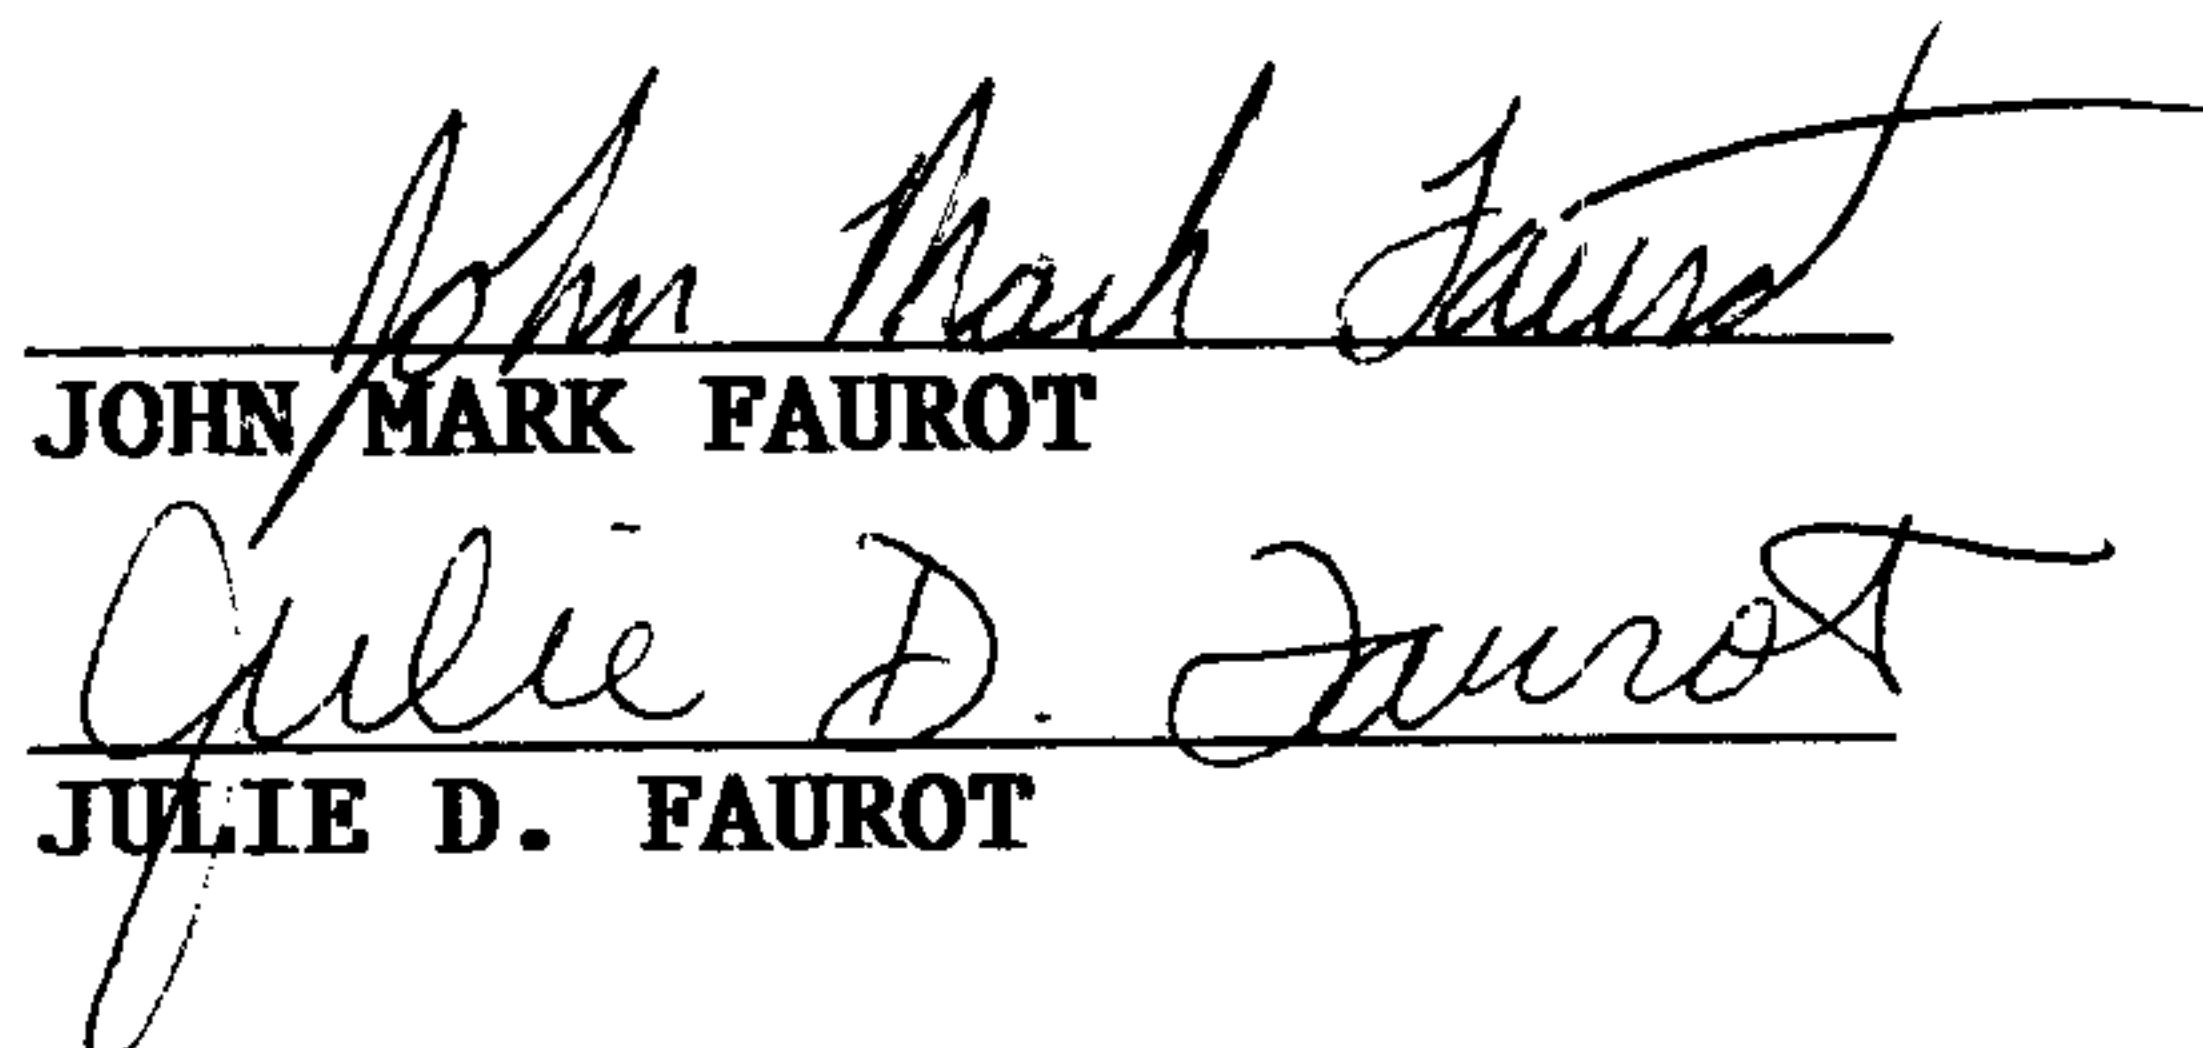 John Mark Faurot
JOHN MARK FAUROT
Julie D. Faurot
JULIE D. FAUROT